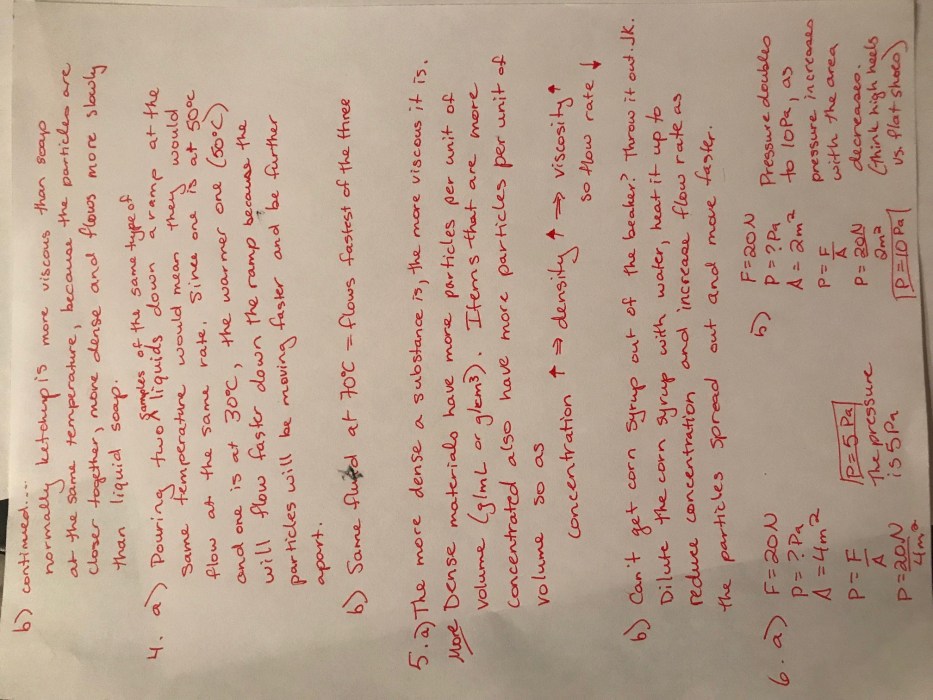 b) continued....
normally ketchup is more viscous than soap
at the same temperature, because the particles are
closer together, more dense and flows more slowly
than liquid soap.
4. a) Pouring two samples of the same type of liquids down a ramp at the
same temperature would mean they would
flow at the same rate. Since one is at 50°C
and one is at 30°C, the warmer one (50°C)
will flow faster down the ramp because the
particles will be moving faster and be further
apart.
b) Same fluid at 70°C = flows fastest of the three
5. a) The more dense a substance is, the more viscous it is.
More Dense materials have more particles per unit of
volume (g/mL or g/cm³). Items that are more
concentrated also have more particles per unit of
volume so as
concentration ↑ ⇒ density ↑ ⇒ viscosity ↑
so flow rate ↓
b) Can't get corn syrup out of the beaker? Throw it out. JK.
Dilute the corn syrup with water, heat it up to
reduce concentration and increase flow rate as
the particles spread out and move faster.
6. a) F=20N
P=?Pa
A=4m²
P=F/A
P=20N/4m²
P=5 Pa
The pressure
is 5Pa
b) F=20N
P=?Pa
A=2m²
P=F/A
P=20N/2m²
P=10 Pa
Pressure doubles
to 10Pa, as
pressure increases
with the area
decreases.
(think high heels
vs. flat shoes)